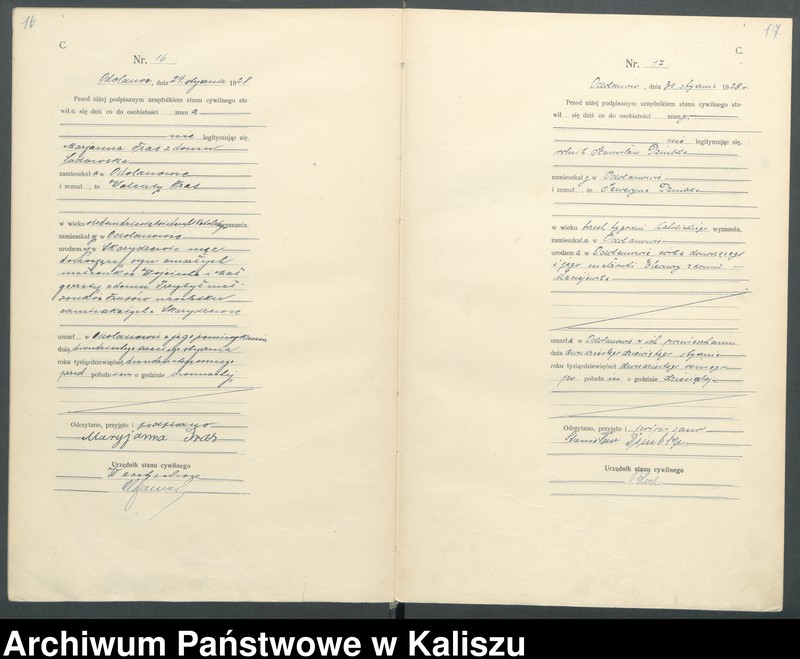 16
C.
Nr. 16
Odolanów, dnia 24 stycznia 1928
Przed niżej podpisanym urzędnikiem stanu cywilnego sta-
wiła się dziś co do osobistości znana
nie legitymując się,
Marjanna Fras z domu
Sadowska
zamieszkała w Odolanowie
i zeznał, że Walenty Fras
w wieku wyznania,
zamieszkały w Odolanowie
urodzony w Skarydzewie mąż
małżonków Wojciecha i Mał
gorzaty z domu Przybył mał-
żonków Frasów
zamieszkałych w Skarydzewie
umarł w Odolanowie w jego pomieszkaniu
dnia dwudziestego trzeciego stycznia
roku tysiącdziewięćset dwudziestegoósmego
przed południem o godzinie
Odczytano, przyjęto i podpisano
Maryjanna Fras
Urzędnik stanu cywilnego
W zastępstwie
17
C.
Nr. 17
Odolanów, dnia 30 stycznia 1928 r.
Przed niżej podpisanym urzędnikiem stanu cywilnego sta-
wił się dziś co do osobistości znany
nie legitymując się,
rolnik Stanisław
zamieszkały w Odolanowie
i zeznał, że Seweryna
w wieku trzech tygodni katolickiego wyznania,
zamieszkała w Odolanowie
urodzona w Odolanowie córka donoszącego
i jego małżonki z domu
umarła w Odolanowie w ich pomieszkaniu
dnia dwudziestego dziewiątego stycznia
roku tysiącdziewięćset dwudziestego ósmego
po południu o godzinie dziesiątej
Odczytano, przyjęto i podpisano
Stanisław
Urzędnik stanu cywilnego
Archiwum Państwowe w Kaliszu